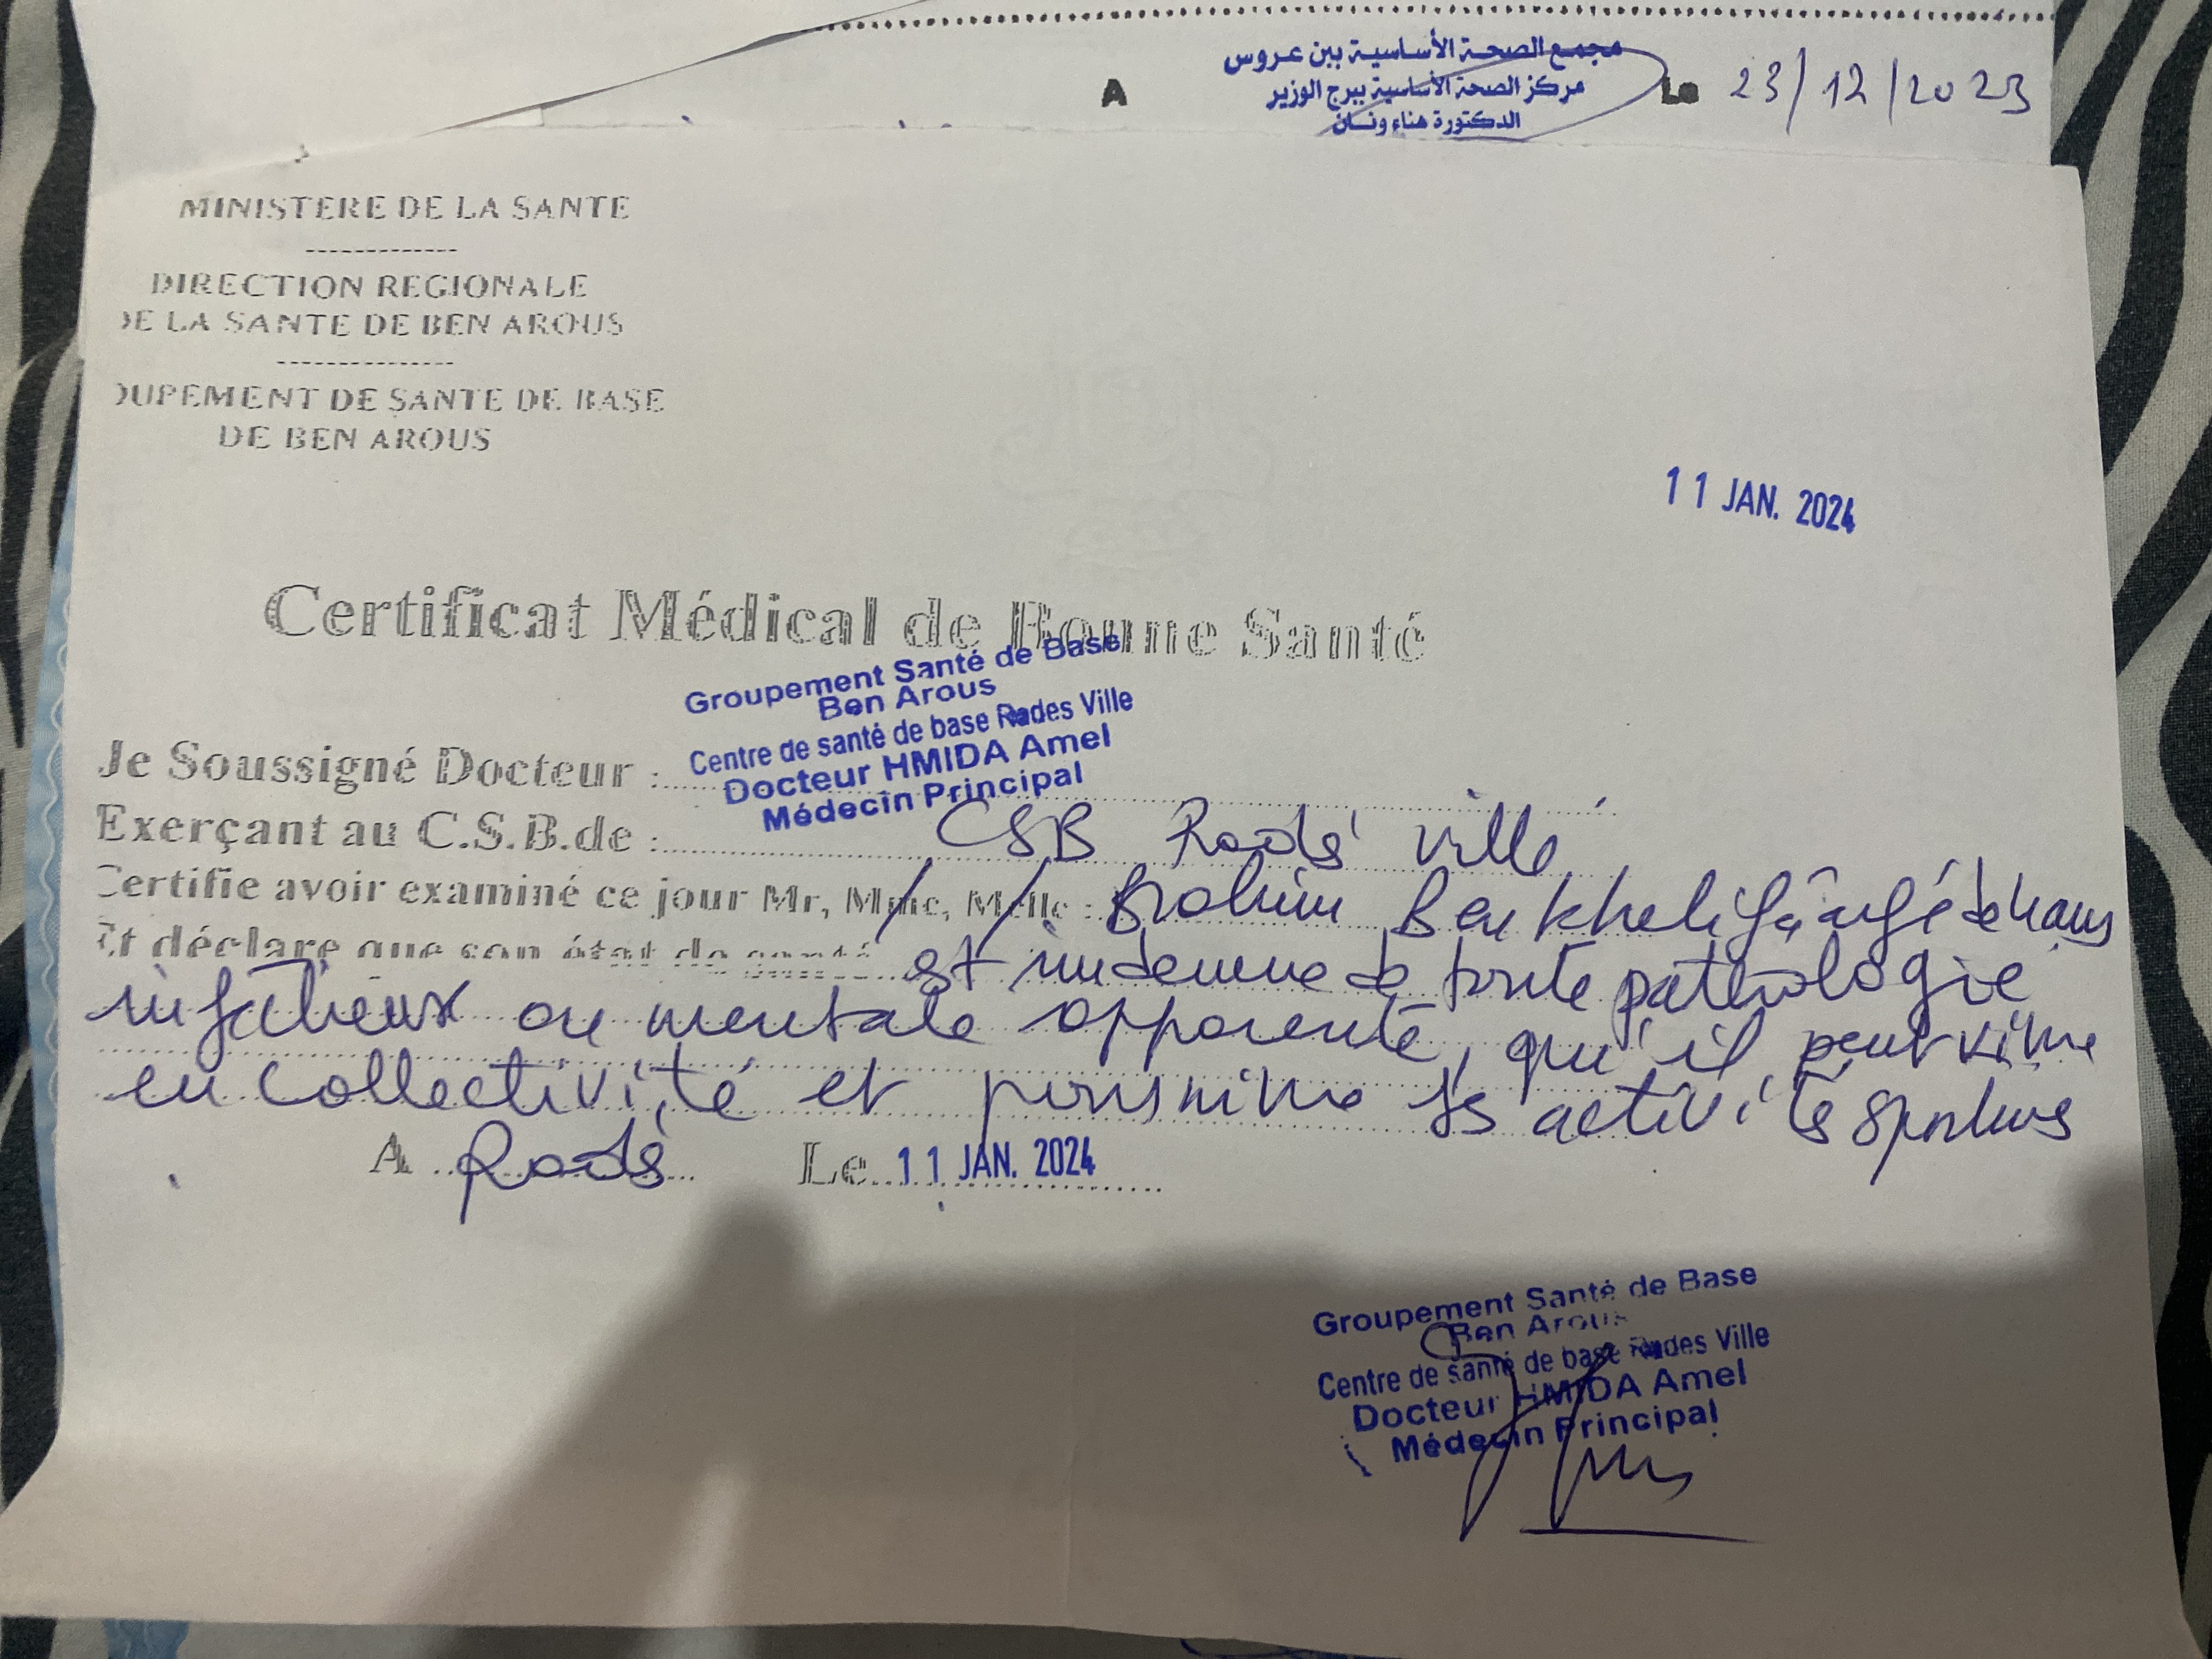 مجمع الصحة الأساسية ببن عروس
مركز الصحة الأساسية ببرج الوزير
الدكتورة هناء ونسان
A Le 23/12/2023
MINISTERE DE LA SANTE
DIRECTION REGIONALE
DE LA SANTE DE BEN AROUS
OUPEMENT DE SANTE DE BASE
DE BEN AROUS
11 JAN. 2024
Certificat Médical de Bonne Santé
Groupement Santé de Base
Ben Arous
Centre de santé de base Rades Ville
Docteur HMIDA Amel
Médecin Principal
Je Soussigné Docteur :
Exerçant au C.S.B.de : CSB Radès ville
Certifie avoir examiné ce jour Mr, Mme, Melle : Brahim Benkhelifa âgé de ans
Et déclare que son état de santé est indemne de toute pathologie
infectieux ou mentale apparente, qu'il peut vivre
en collectivité et poursuivre ses activités sportives
A Radès Le 11 JAN. 2024
Groupement Santé de Base
Ben Arous
Centre de santé de base Rades Ville
Docteur HMIDA Amel
Médecin Principal